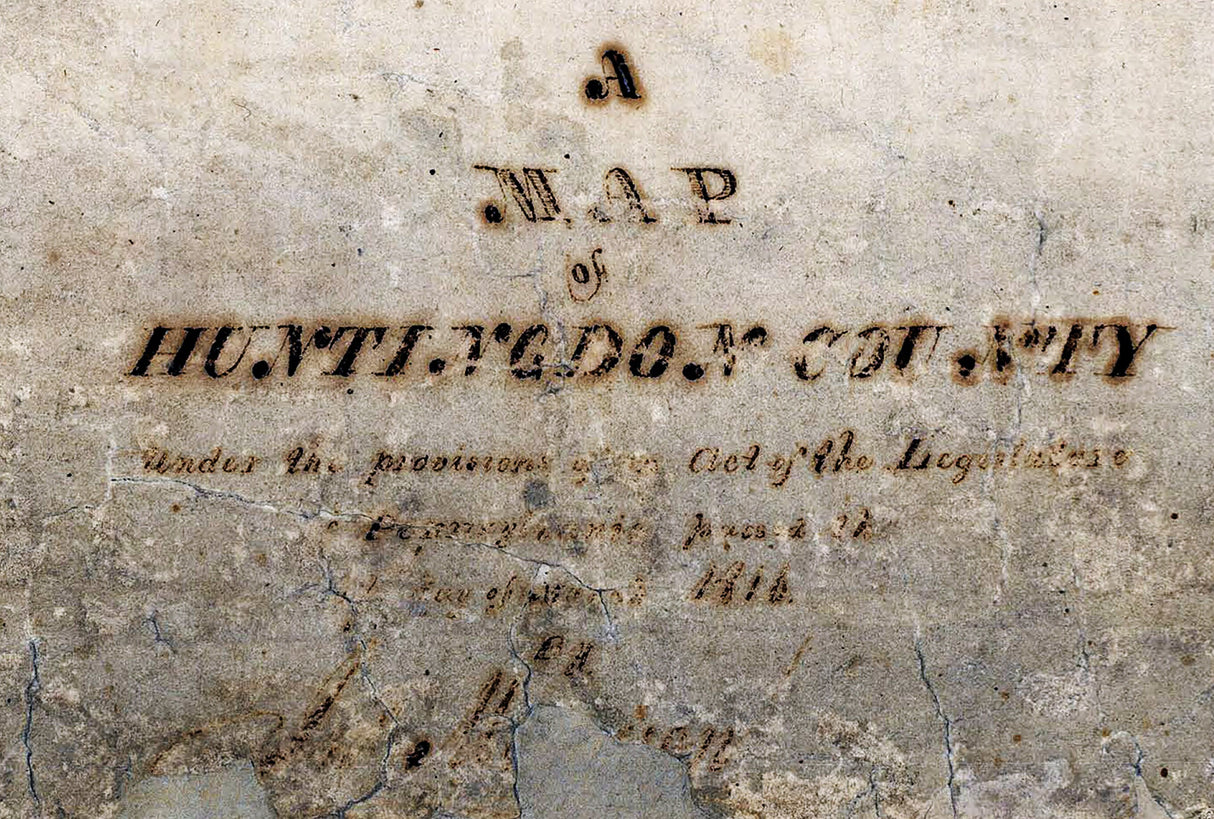 A
MAP
of
HUNTINGDON COUNTY
Under the provisions of an Act of the Legislature
Pennsylvania passed the
day of March 1816.
By